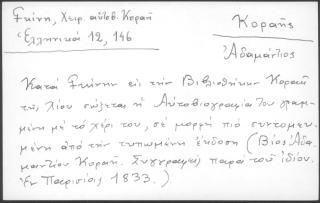 Γκίνη, Χειρ. αὐτοβ. Κοραῆ
Ἑλληνικά 12, 146
Κοραῆς
Ἀδαμάντιος
Κατά Γκίνην εἰς τήν Βιβλιοθήκην Κοραῆ
τῆς Χίου σώζεται ἡ Αὐτοβιογραφία του γραμ-
μένη μέ τό χέρι του, σέ μορφή πιό συντομευ-
μένη ἀπό τήν τυπωμένη ἔκδοση (Βίος Ἀδα-
μαντίου Κοραῆ. Συγγραφείς παρά τοῦ ἰδίου.
Ἐν Παρισίοις 1833.)